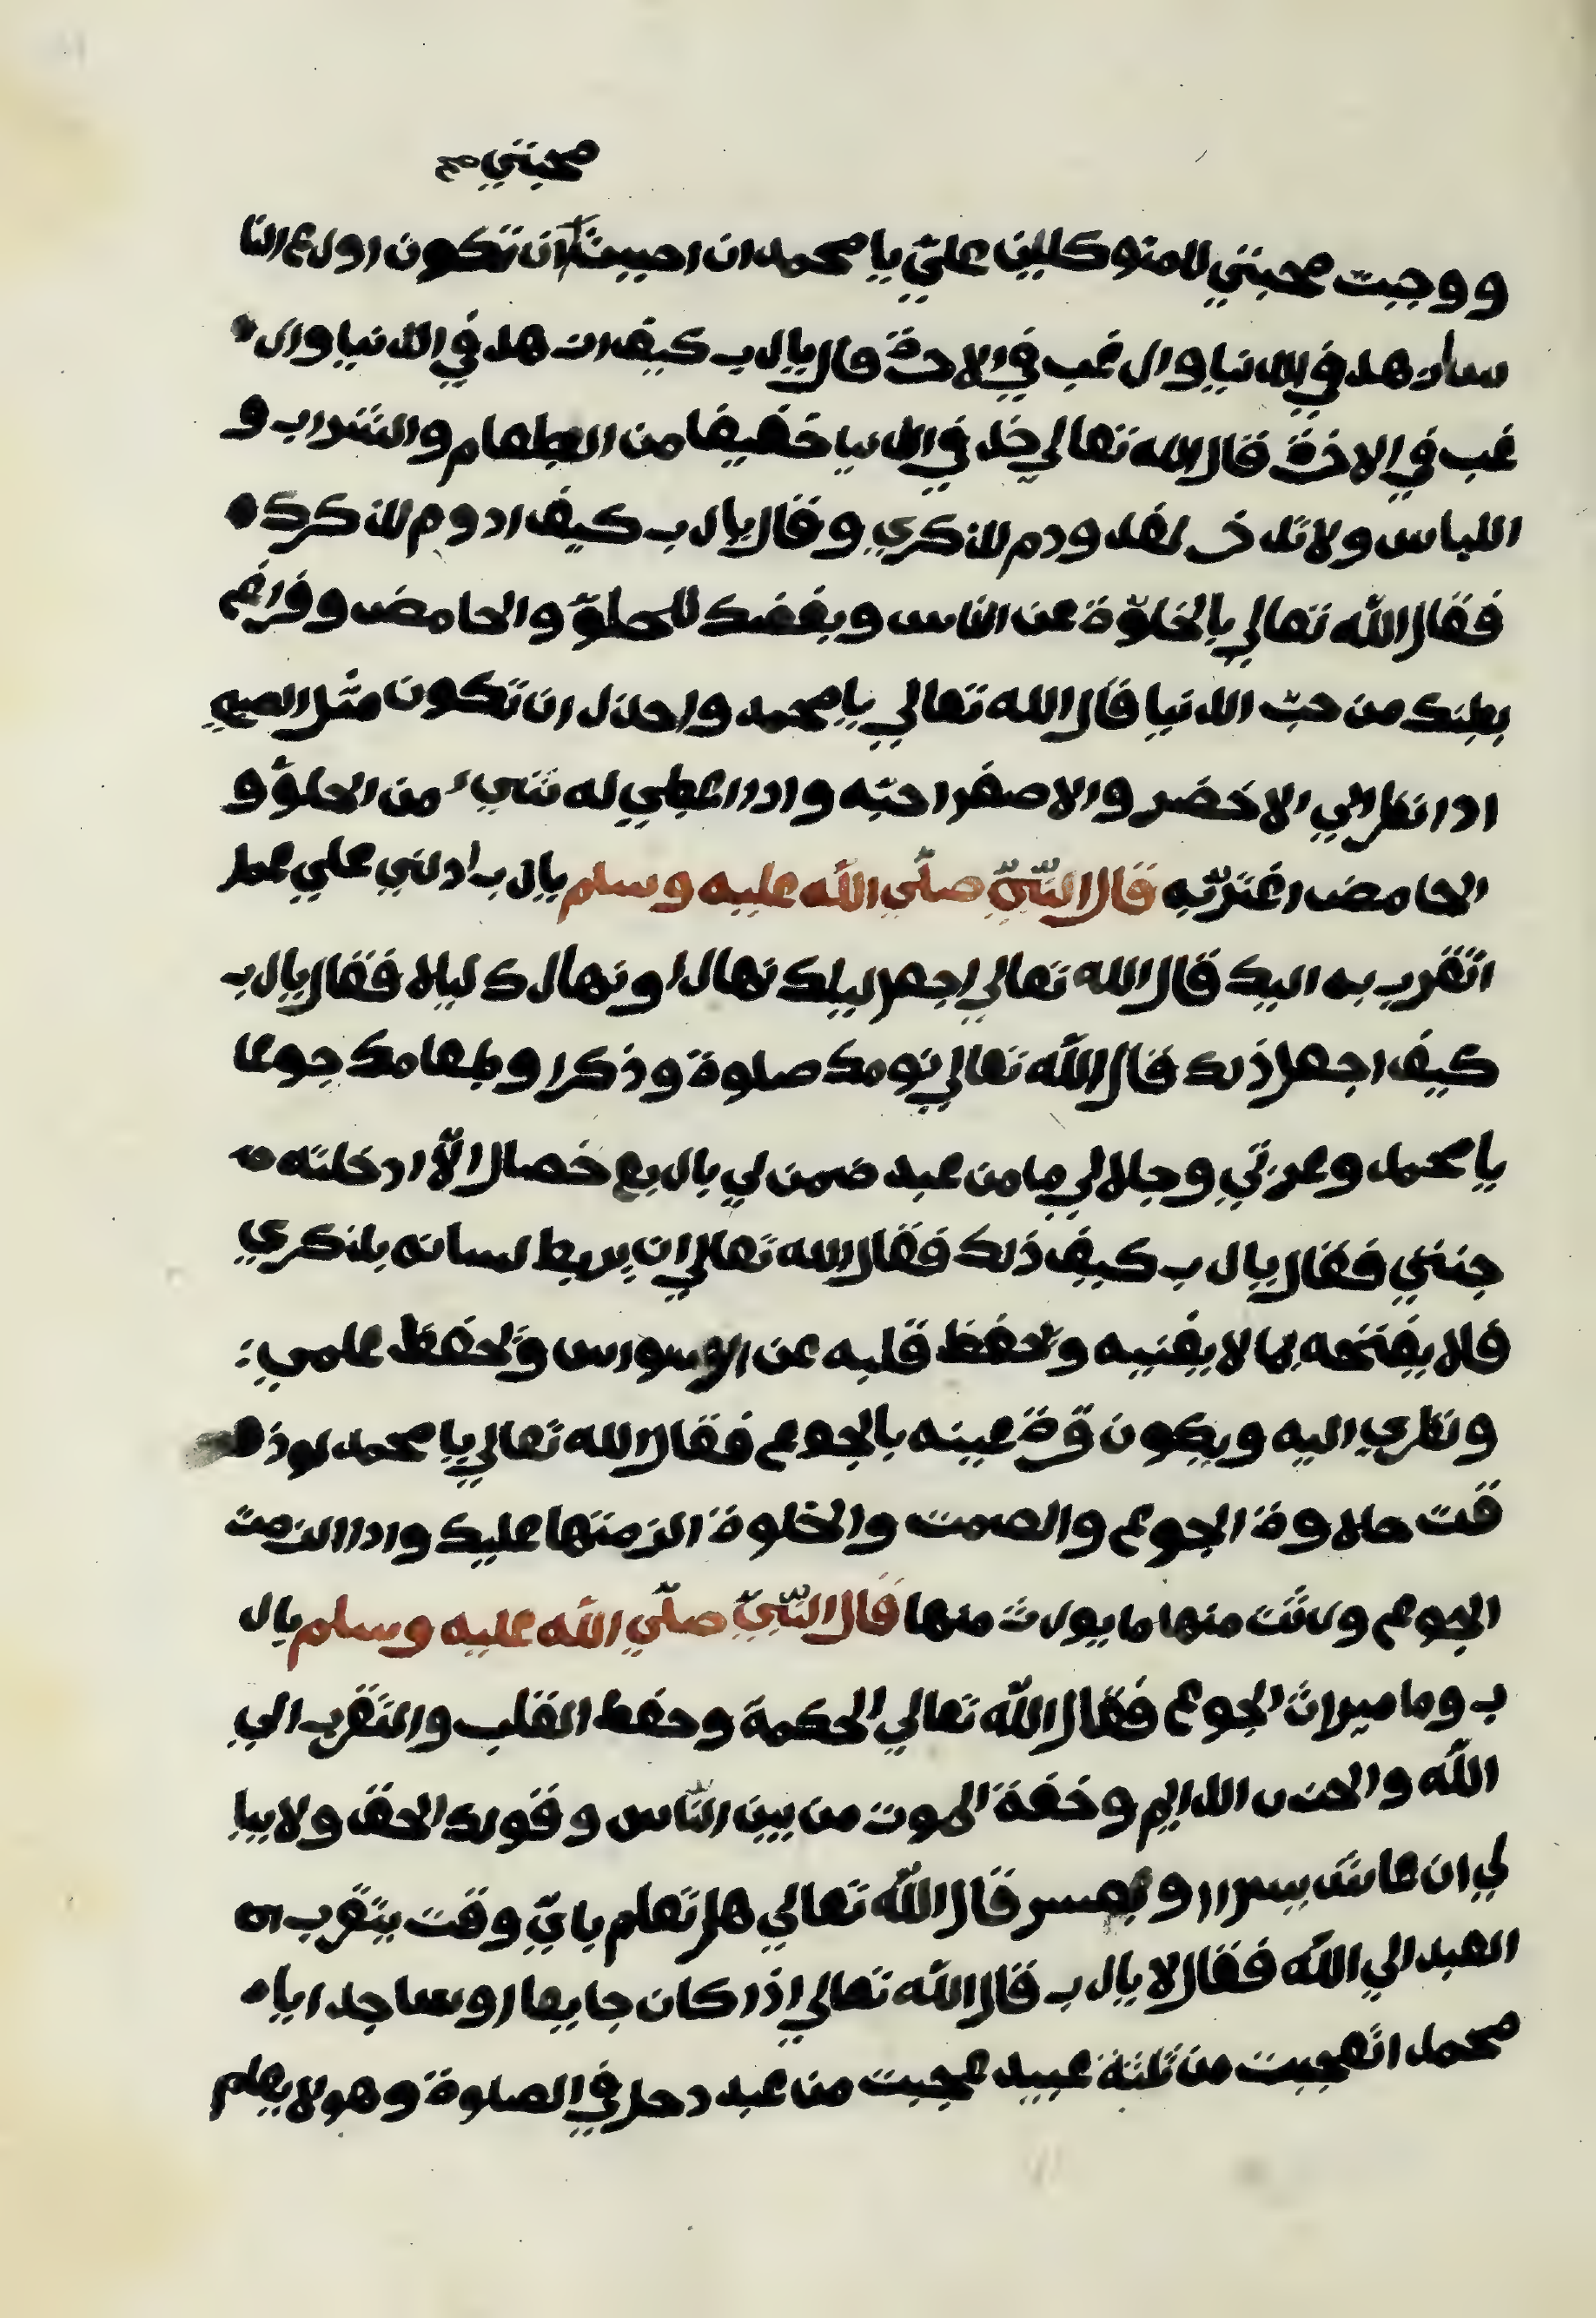 محبتي صح
و وجبت محبتي للمتوكلين عليّ يا محمد ان احببت ان تكون اورع النا
س از هد في الدنيا وار غب في الاخرة قال يارب كيف از هد في الدنيا وار
غب في الاخرة قال الله تعالي خد في الدنيا خفيفا من الطعام والشراب و
اللباس ولا تدخر لغد ودم لذكري وقال يارب كيف ادوم لذكرك
فقال الله تعالي بالخلوّة عن الناس وبغضك للحلوّ والحامض وفراغ
بطنك من حبّ الدنيا قال الله تعالي يا محمد واحذر ان تكون مثل الصبي
ادا نظر الي الاخضر والاصفر احبّه وادا اعطي له شيء من الحلوّ و
الحامض اغترّ به قال النّبيّ صلّي الله عليه وسلم يارب ادلني علي عمل
اتقرب به اليك قال الله تعالي اجعل ليلك نهارا ونهارك ليلا فقال يارب
كيف اجعل ذلك قال الله تعالي نومك صلوة وذكرا وطعامك جوعا
يا محمد وعزتي وجلالي ما من عبد ضمن لي باربع خصال الّا ادخلته
جنتي فقال يارب كيف ذلك فقال الله تعالي ان يربط لسانه بذكري
فلا يفتحه بما لا يغنيه وتحفظ قلبه عن الوسواس وتحفظ علمي
ونظري اليه ويكون قرة عينه بالجوع فقال الله تعالي يا محمد لو ذ
قت حلاوة الجوع والصمت والخلوة الزمتها عليك وادا الزمت
الجوع ورثت منها ما يورث منها قال النّبيّ صلّي الله عليه وسلم يار
ب وما ميراث الجوع فقال الله تعالي الحكمة وحفط القلب والتقرب الي
الله والحزن الدايم وخفة الموت من بين النّاس وقول الحق ولا يبا
لي ان عاش بيسر او بعسر قال الله تعالي هل تعلم بايّ وقت يتقرب
العبد الي الله فقال لا يارب قال الله تعالي اذا كان جايعا او ساجدا يا
محمد اتعجبت من ثلثة عبيد عجبت من عبد دخل في الصلوة وهو لا يعلم